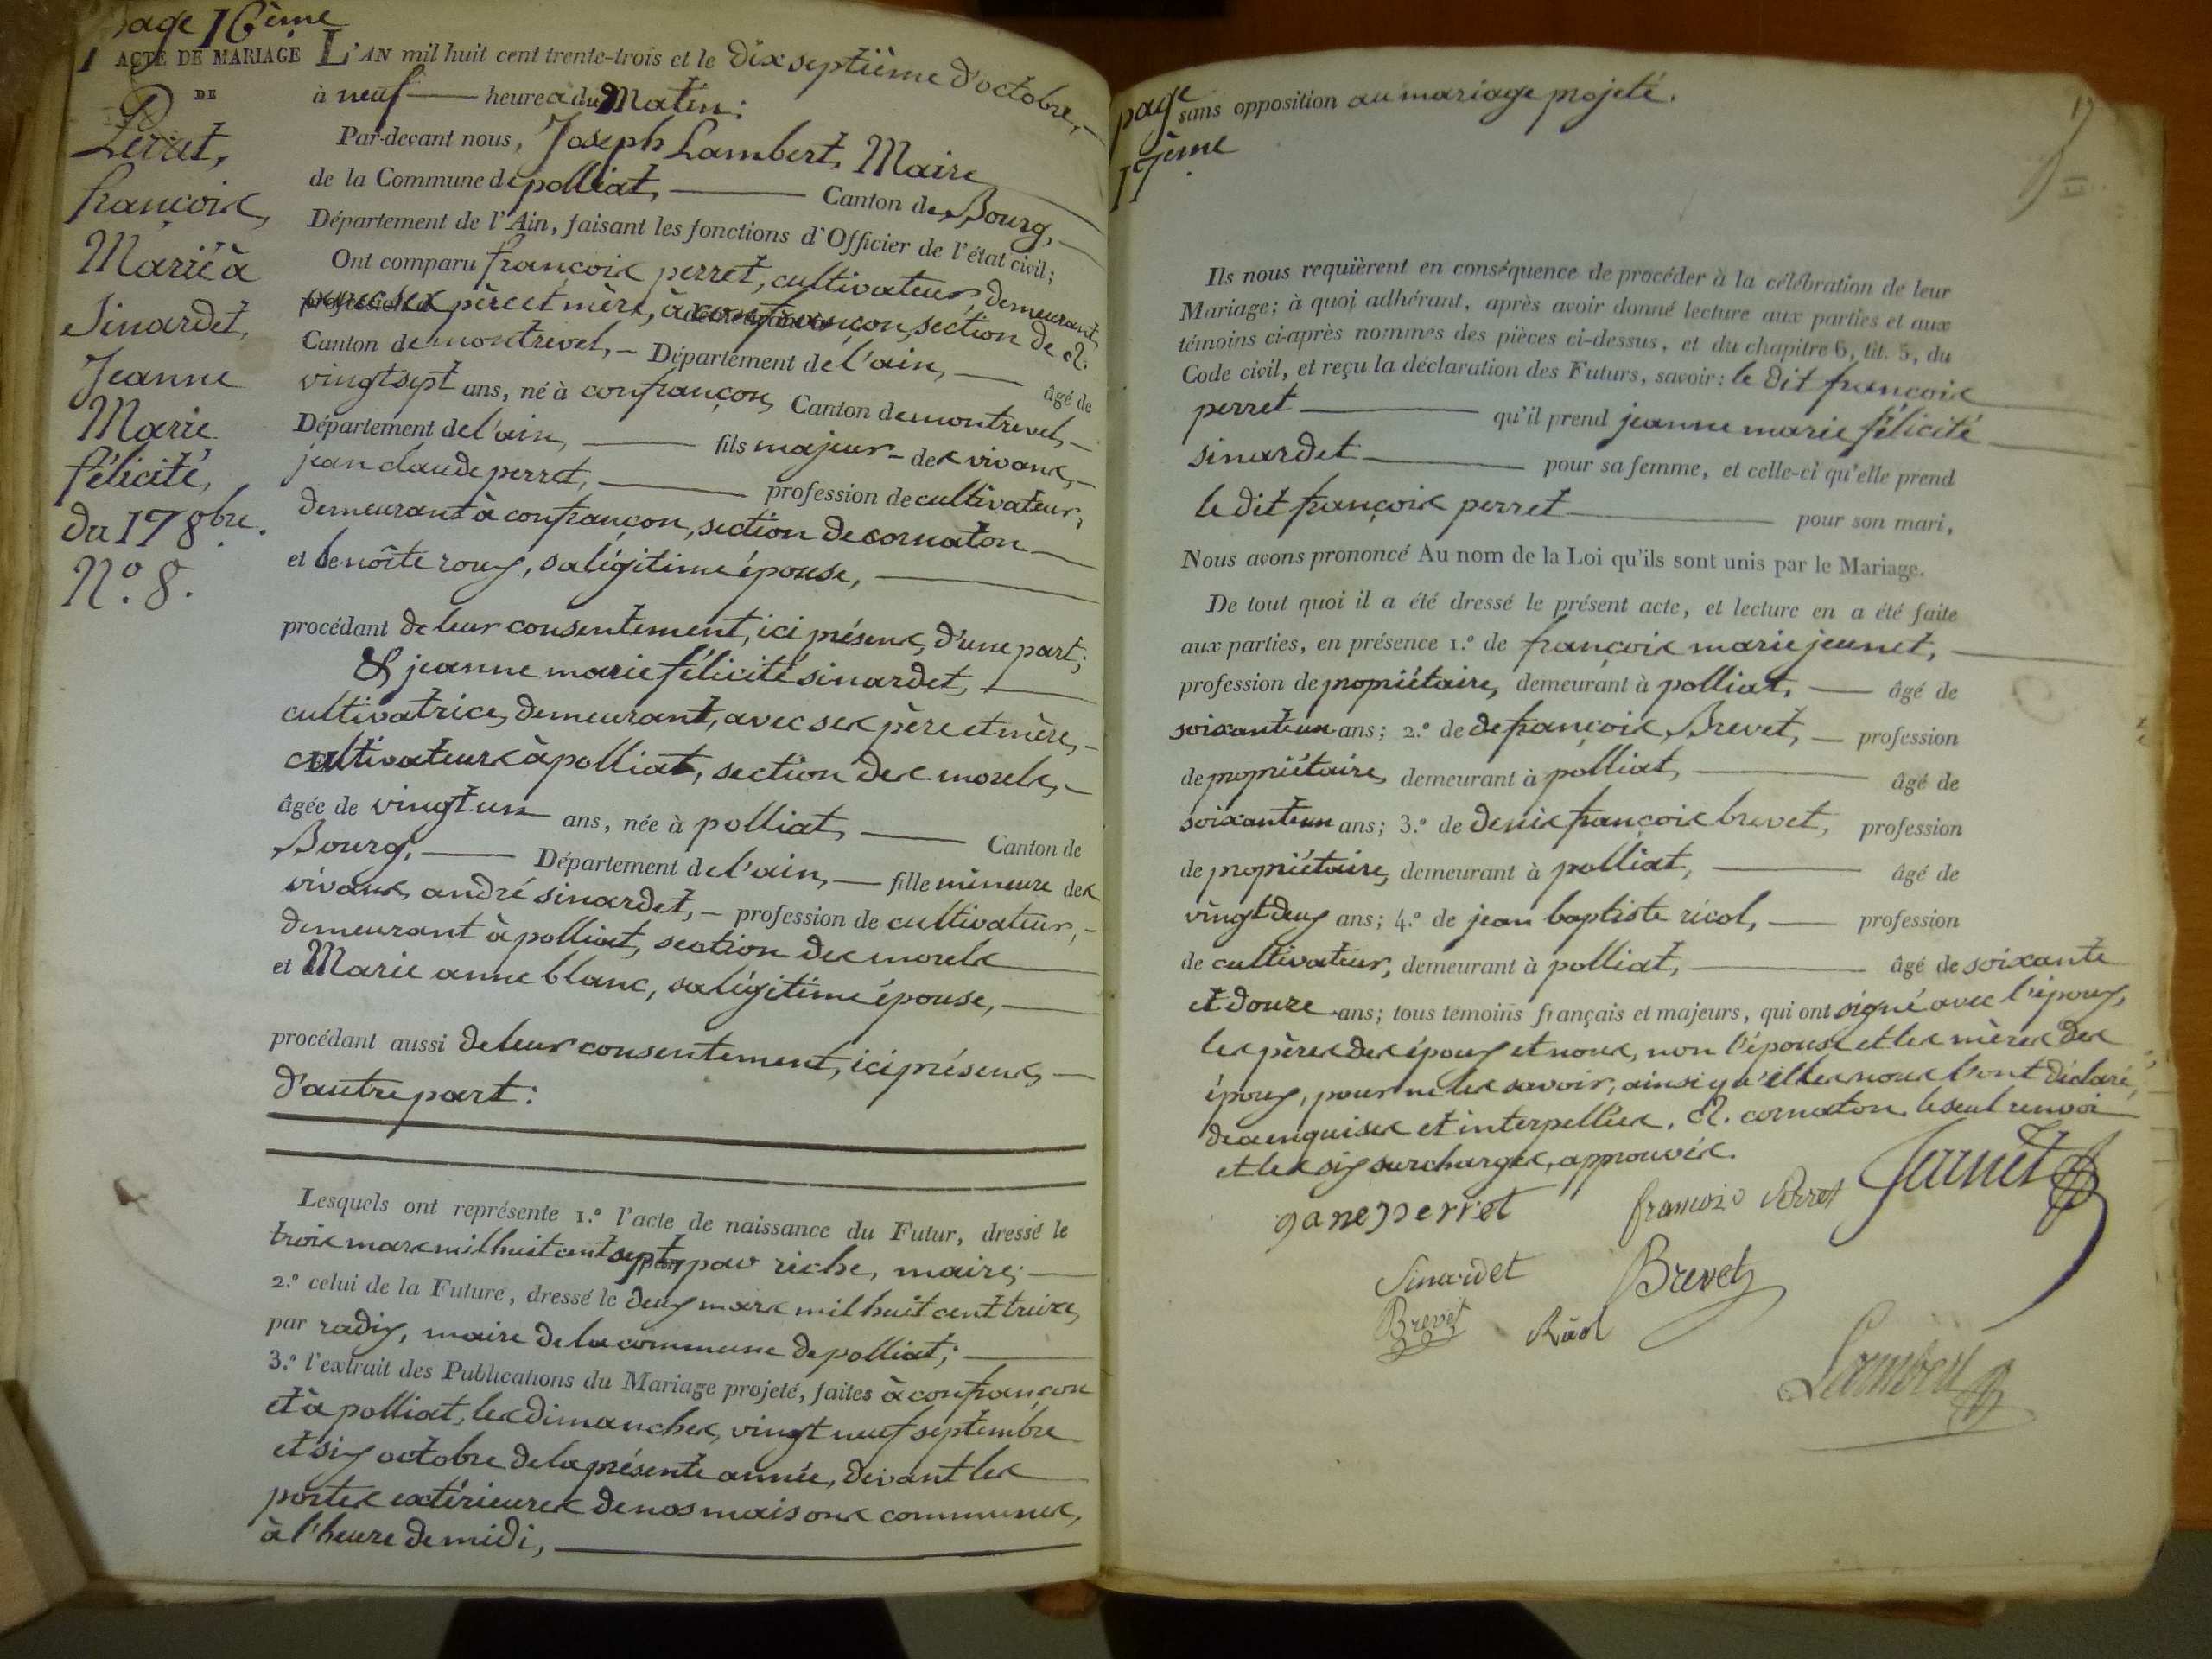 page 16ème
ACTE DE MARIAGE
DE
Perret,
françois,
Marié à
Sinardet,
Jeanne
Marie
félicité,
du 17 8bre.
N.º 8.
L'AN mil huit cent trente-trois et le dix septième d'octobre,
à neuf heures du Matin:
Par-devant nous, Joseph Lambert, Maire
de la Commune de polliat, Canton de Bourg,
Département de l'Ain, faisant les fonctions d'Officier de l'état civil;
Ont comparu françois perret, cultivateur, demeurant,
avec ses père et mère, à confrançon, section de R.
Canton de montrevel, Département de l'ain, âgé de
vingt sept ans, né à confrançon, Canton de montrevel,
Département de l'ain, fils majeur des vivans,
jean claude perret, profession de cultivateur,
demeurant à confrançon, section de cornaton
et benoîte roux, sa légitime épouse,
procédant de leur consentement, ici présens, d'une part;
& jeanne marie félicité sinardet,
cultivatrice, demeurant, avec ses père et mère,
cultivateurs à polliat, section des morels,
âgée de vingt-un ans, née à polliat, Canton de
Bourg, Département de l'ain, fille mineure des
vivans, andré sinardet, profession de cultivateur,
demeurant à polliat, section des morels
et Marie anne blanc, sa légitime épouse,
procédant aussi de leur consentement, ici présens,
d'autre part:
Lesquels ont représenté 1.º l'acte de naissance du Futur, dressé le
trois mars mil huit cent sept, par riche, maire;
2.º celui de la Future, dressé le deux mars mil huit cent treize,
par radix, maire de la commune de polliat;
3.º l'extrait des Publications du Mariage projeté, faites à confrançon
et à polliat, les dimanches, vingt neuf septembre
et six octobre de la présente année, devant les
portes extérieures de nos maisons communes,
à l'heure de midi,
page
17ème
sans opposition au mariage projeté.
17
Ils nous requièrent en conséquence de procéder à la célébration de leur
Mariage; à quoi adhérant, après avoir donné lecture aux parties et aux
témoins ci-après nommés des pièces ci-dessus, et du chapitre 6, tit. 5, du
Code civil, et reçu la déclaration des Futurs, savoir: le dit françois
perret qu'il prend jeanne marie félicité
sinardet pour sa femme, et celle-ci qu'elle prend
le dit françois perret pour son mari,
Nous avons prononcé Au nom de la Loi qu'ils sont unis par le Mariage.
De tout quoi il a été dressé le présent acte, et lecture en a été faite
aux parties, en présence 1.º de françois marie jeunet,
profession de propriétaire, demeurant à polliat, âgé de
soixante un ans; 2.º de de françois Brevet, profession
de propriétaire, demeurant à polliat, âgé de
soixante un ans; 3.º de denis françois brevet, profession
de propriétaire, demeurant à polliat, âgé de
vingt deux ans; 4.º de jean baptiste ricol, profession
de cultivateur, demeurant à polliat, âgé de soixante
et douze ans; tous témoins français et majeurs, qui ont signé avec l'époux,
les pères des époux et nous, non l'épouse et les mères des
époux, pour ne les savoir, ainsi qu'elles nous l'ont déclaré,
de ce enquises et interpellées. R. cornaton. le seul renvoi
et les six surcharges, approuvés.
perret françois Perret Jeunet
Sinardet Brevet
Brevet Ricol
Lambert